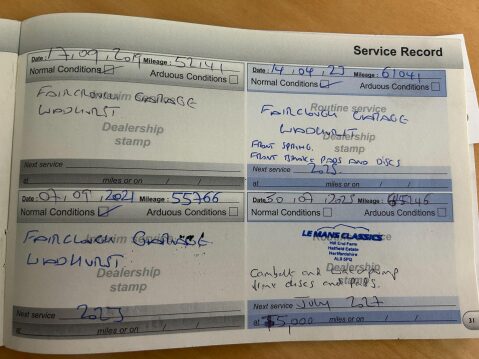 Service Record
Date: 17, 09, 2019 Mileage: 52,141
Normal Conditions Arduous Conditions
FAIRCLOUGH GARAGE
WADHURST
Interim service
Dealership
stamp
Next service
at miles or on / /
Date: 14, 04, 23 Mileage: 61041
Normal Conditions Arduous Conditions
FAIRCLOUGH GARAGE
Routine service
WADHURST
Dealership
stamp
FRONT SPRING.
FRONT BRAKE PADS AND DISCS
Next service 2025.
at miles or on / /
Date: 07, 09, 2021 Mileage: 55766
Normal Conditions Arduous Conditions
FAIRCLOUGH GARAGE
Interim service
WADHURST.
Dealership
stamp
Next service 2023
at miles or on / /
Date: 30, 07, 2025 Mileage:
Normal Conditions Arduous Conditions
LE MANS CLASSICS
Hill End Farm
Hatfield Estate
Hertfordshire
AL9 5PQ
Cambelt and water pump
Dealership
stamp
discs and pads.
Next service July 2027
at 75,000 miles or on / /
31